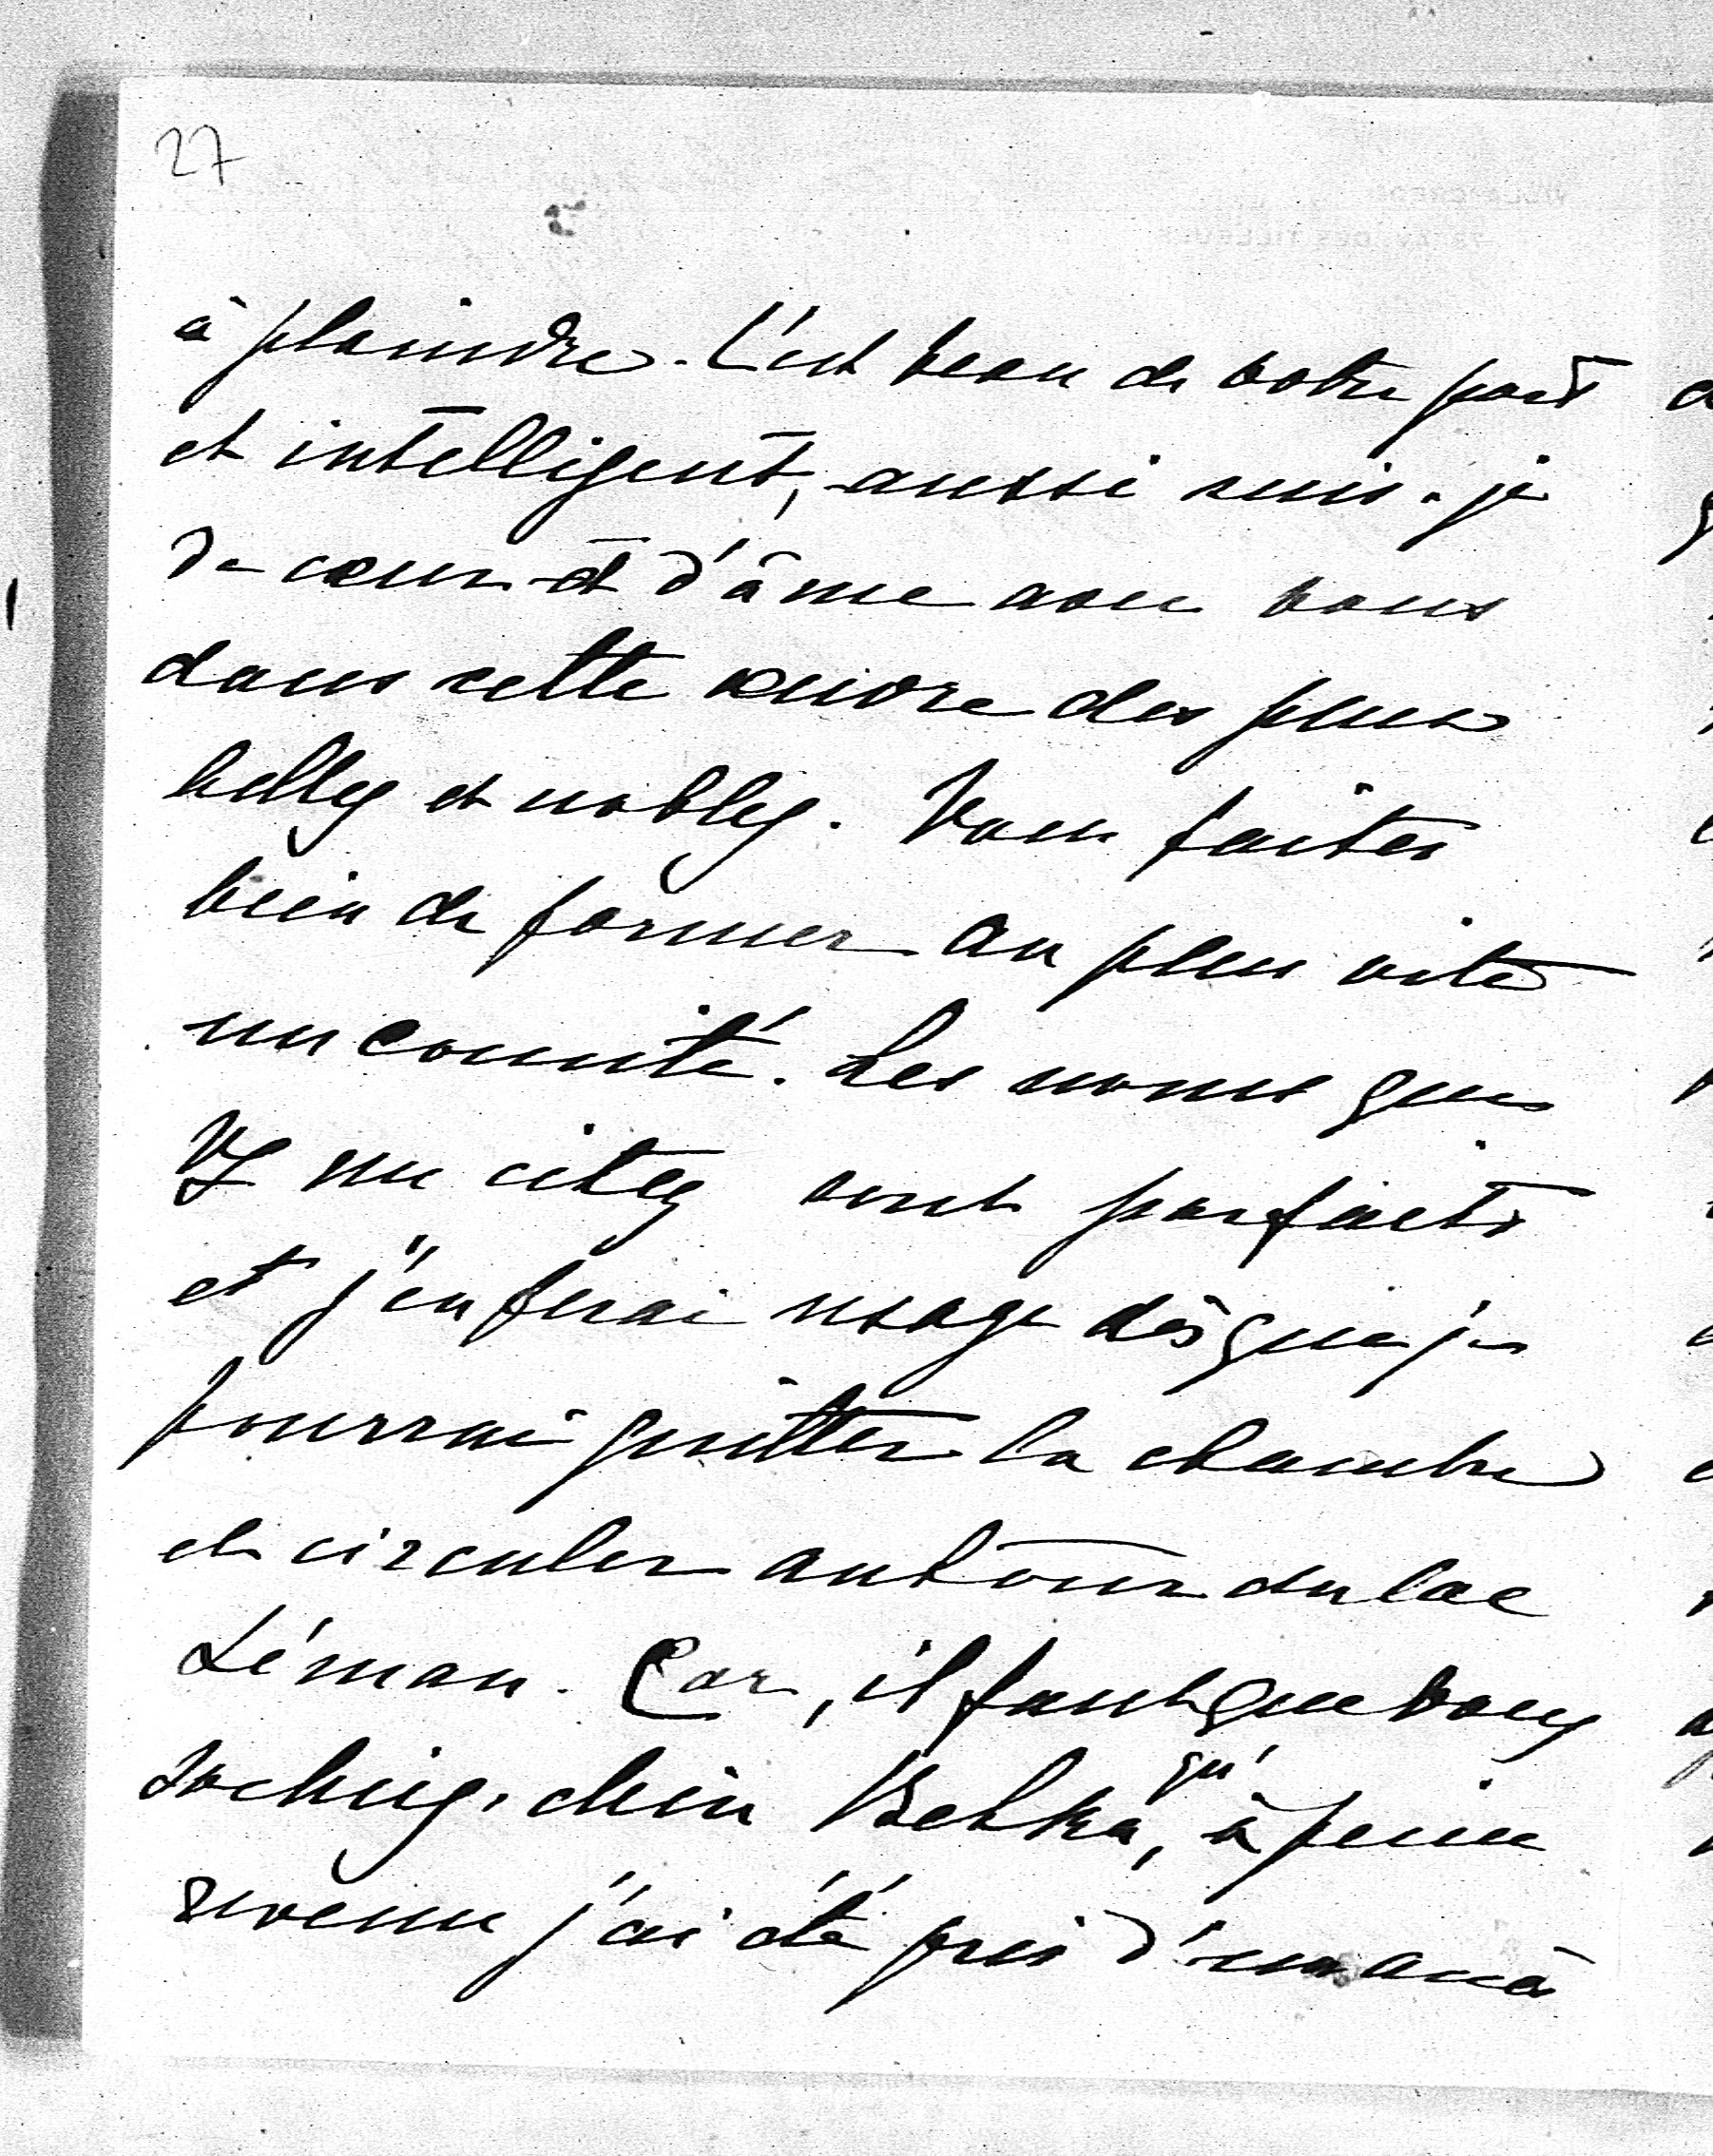 27
à plaindre. C'est beau de votre part
et intelligent, aussi suis-je
de cœur et d'âme avec vous
dans cette œuvre des plus
belles et nobles. Vous faites
bien de former au plus vite
un comité. Les noms que
Vs me citez sont parfaits
et j'en ferai usage dès que je
pourrai quitter la chambre
et circuler autour du lac
Léman. Car, il faut que vous
sachiez, chère qu'à peine
revenu j'ai été pris d'un accè